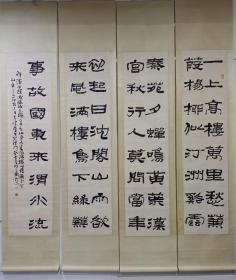 一上高樓萬里愁蒹
葭楊柳似汀洲溪雲
秦苑夕蟬鳴黃葉漢
宮秋行人莫問當年
初起日沈閣山雨欲
來風滿樓鳥下綠蕪
事故國東來渭水流